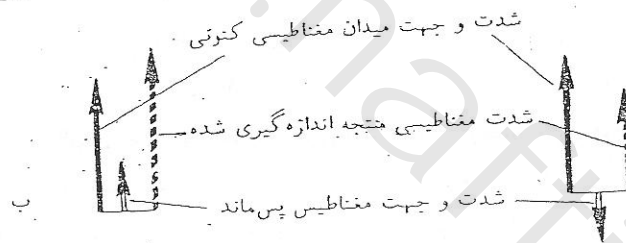 شدت و جهت میدان مغناطیسی کنونی
شدت مغناطیسی منتجه اندازه گیری شده
شدت و جهت مغناطیس پس‌ماند
ب